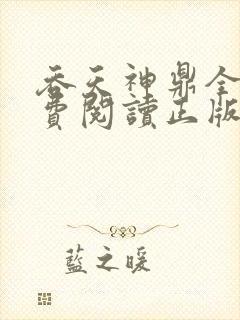 吞天神鼎全
費閱讀正版
藍之暖